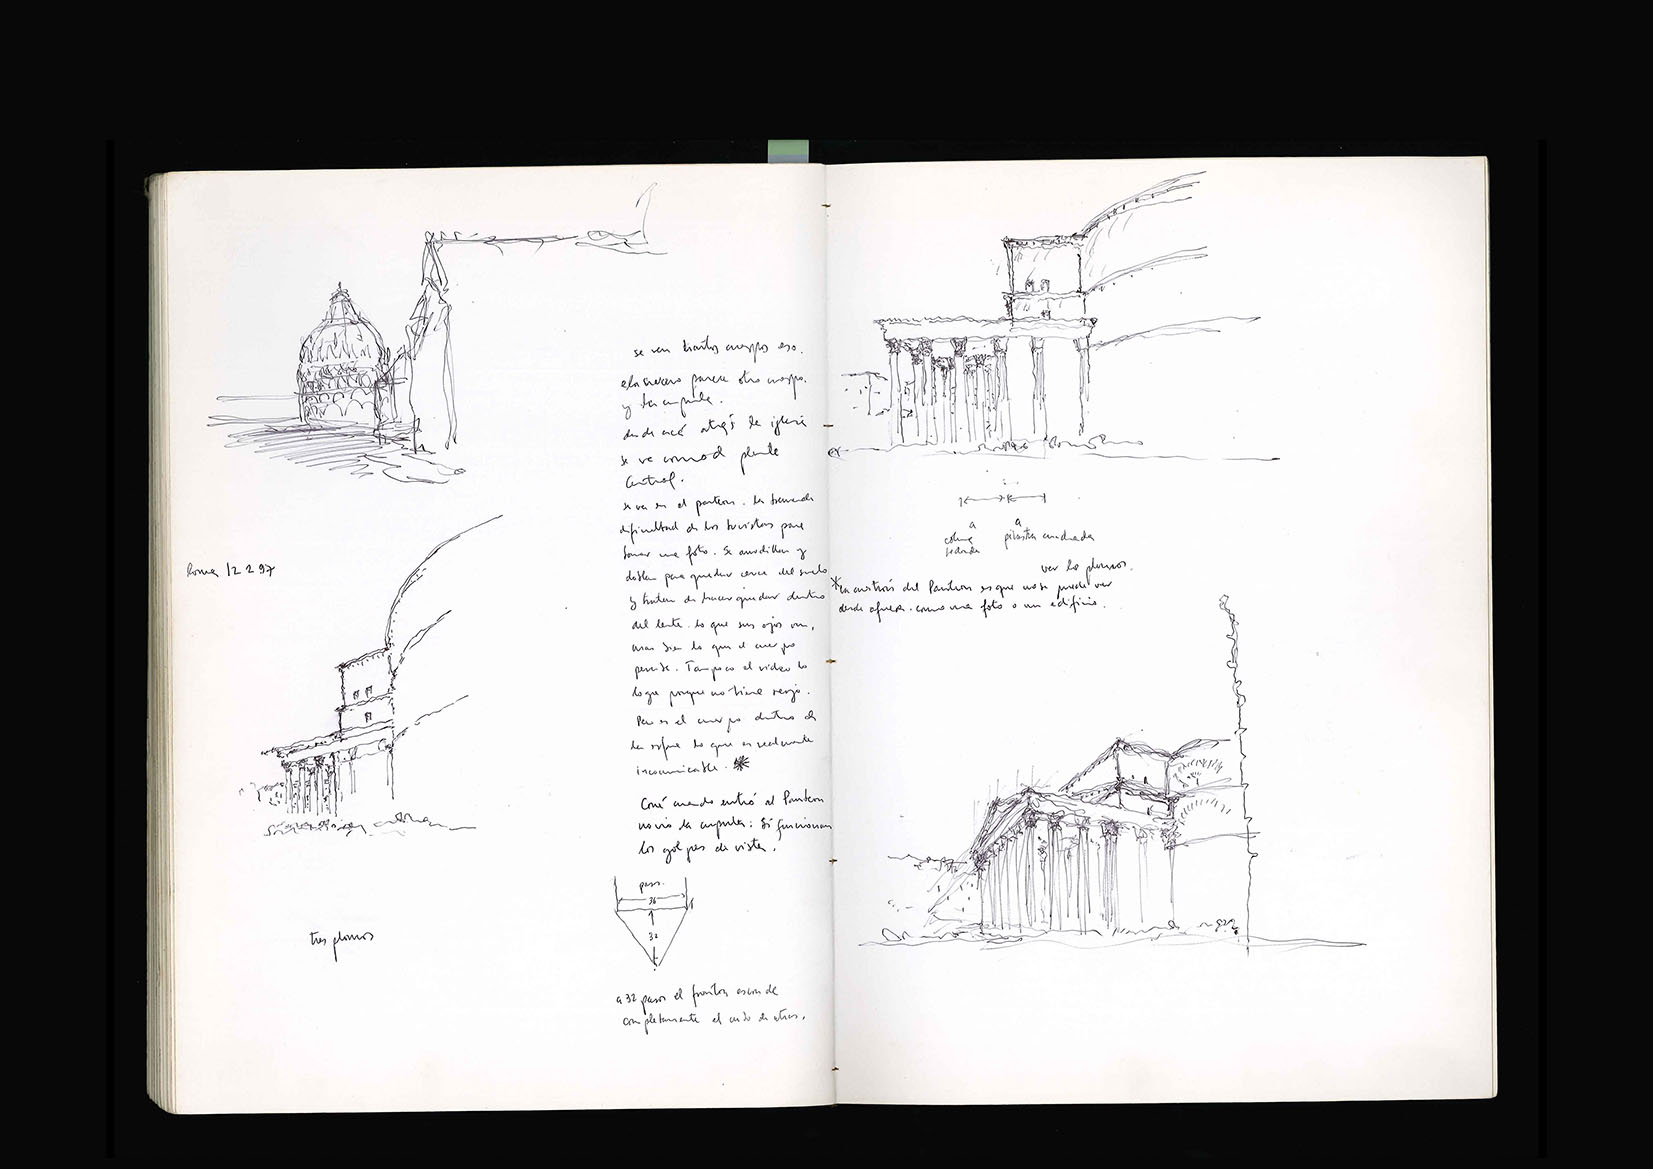 Roma 12 2 97
tres planos
se ven tantos cuerpos eso.
parece otro cuerpo.
y la cupula.
desde acá atrás la iglesia
se ve como d planta
Central.
se ve en el panteon. la tremenda
dificultad de los turistas para
tomar una foto. Se arrodillan y
doblan para quedar cerca del suelo
y tratan de hacer quedar dentro
del lente. lo que sus ojos ven,
mas bien lo que el cuerpo
percibe. Tampoco el video lo
logra porque no tiene reojo.
Pero es el cuerpo dentro de
la esfera lo que es realmente
incomunicable. *
Coné cuando entró al Panteon
no vio la cupula: Si funcionan
los golpes de vista.
pasos.
36
32
a 32 pasos el fronton esconde
completamente el cubo de atras.
a a
columna pilastra cuadrada
redonda
ver los planos.
*la cuestión del Panteon es que no se puede ver
desde afuera. como una foto o un edificio.